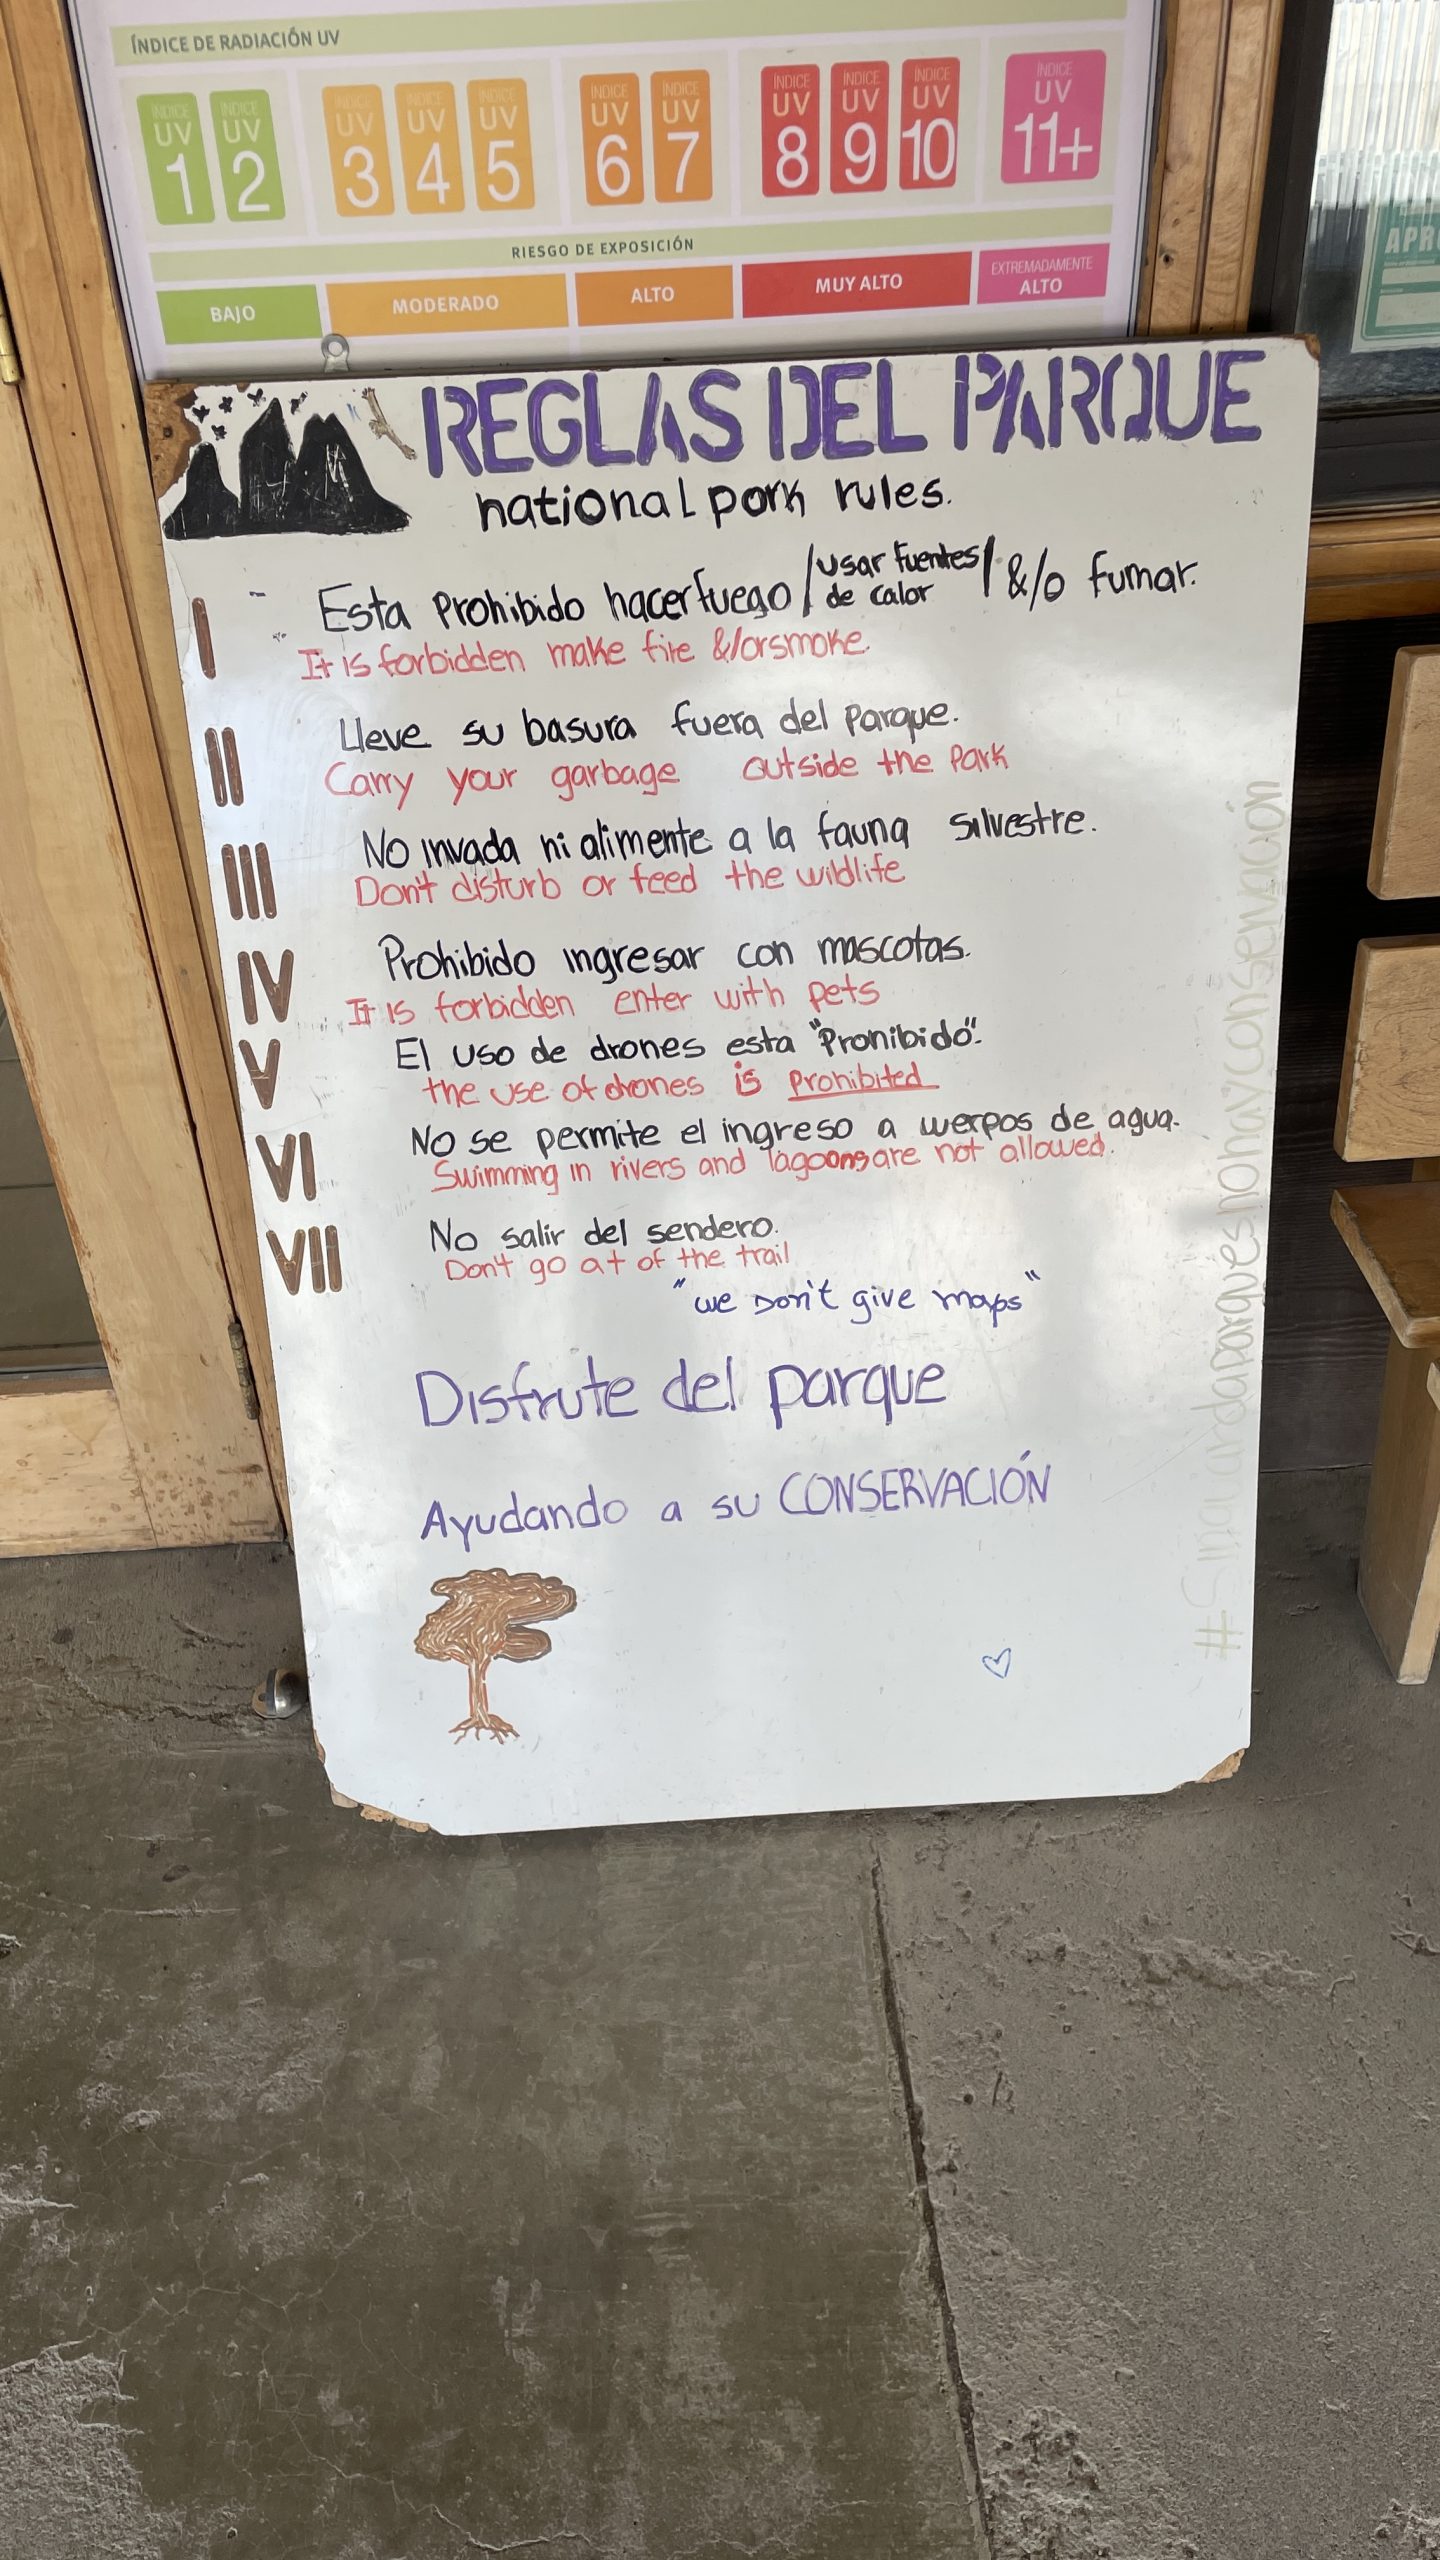 ÍNDICE DE RADIACIÓN UV
ÍNDICE UV 1
ÍNDICE UV 2
ÍNDICE UV 3
ÍNDICE UV 4
ÍNDICE UV 5
ÍNDICE UV 6
ÍNDICE UV 7
ÍNDICE UV 8
ÍNDICE UV 9
ÍNDICE UV 10
ÍNDICE UV 11+
RIESGO DE EXPOSICIÓN
BAJO
MODERADO
ALTO
MUY ALTO
EXTREMADAMENTE
ALTO
REGLAS DEL PARQUE
national park rules.
I Esta Prohibido hacer fuego / usar fuentes de calor / &/o fumar.
It is forbidden make fire &/or smoke.
II Lleve su basura fuera del parque.
Carry your garbage outside the park
III No invada ni alimente a la fauna silvestre.
Don't disturb or feed the wildlife
IV Prohibido ingresar con mascotas.
It is forbidden enter with pets
V El uso de drones esta "Prohibido".
the use of drones is prohibited
VI No se permite el ingreso a cuerpos de agua.
Swimming in rivers and lagoons are not allowed.
VII No salir del sendero.
Don't go at of the trail
"we Don't give maps"
Disfrute del parque
Ayudando a su CONSERVACIÓN